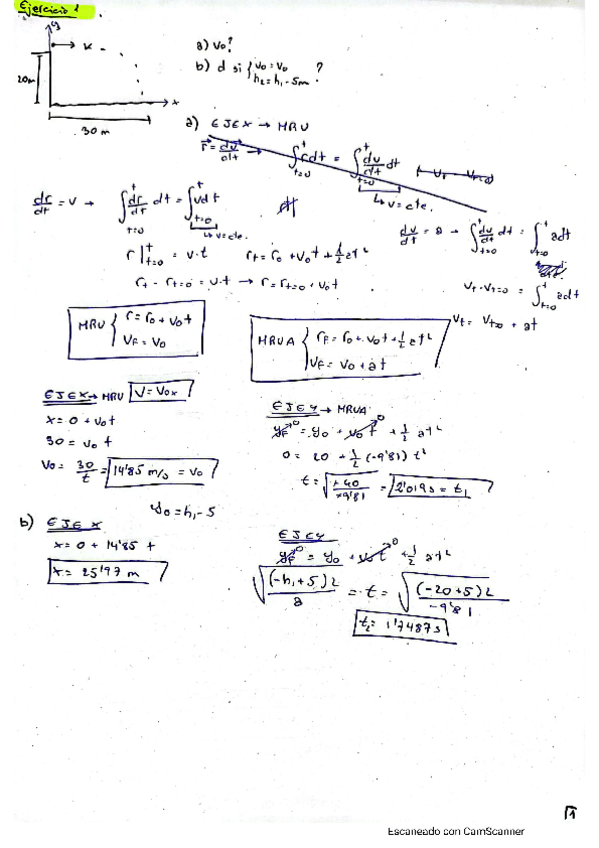 Ejercicio 1
y
x
20m
30 m
x
a) v₀?
b) d si { v₀ = v₀
h₂ = h₁ - 5m ?
a) EJE X → MRU
r⃗ = dv⃗/dt → ∫_{t=0}^{t} r dt = ∫_{t=0}^{t} dv/dt dt
↳ v = cte.
dr/dt = v → ∫_{t=0}^{t} dr/dt dt = ∫_{t=0}^{t} v dt
↳ v = cte.
r|_{t=0}^{t} = v·t
r_t - r_{t=0} = v·t → r = r_{t=0} + v₀t
r_t = r₀ + v₀t + 1/2 at²
dv/dt = a → ∫_{t=0}^{t} dv/dt dt = ∫_{t=0}^{t} a dt
v_t - v_{t=0} = ∫_{t=0}^{t} a dt
v_t = v_{t=0} + at
MRU { r = r₀ + v₀t
v_F = v₀
MRUA { r_F = r₀ + v₀t + 1/2 at²
v_F = v₀ + at
EJE X → MRU v = v₀ₓ
x = 0 + v₀t
30 = v₀ t
v₀ = 30/t = 14'85 m/s = v₀
EJE Y → MRUA
y_F⁰ = y₀ + v₀t⁰ + 1/2 at²
0 = 20 + 1/2 (-9'81) t²
t = √(-40/-9'81) = 2'019s = t₁
y₀ = h₁ - 5
b) EJE X
x = 0 + 14'85 t
x = 25'97 m
EJE Y
y_F⁰ = y₀ + v₀t⁰ + 1/2 at²
√((-h₁+5)2/a) = t = √((-20+5)2/-9'81)
t₂ = 1'7487s
1
Escaneado con CamScanner